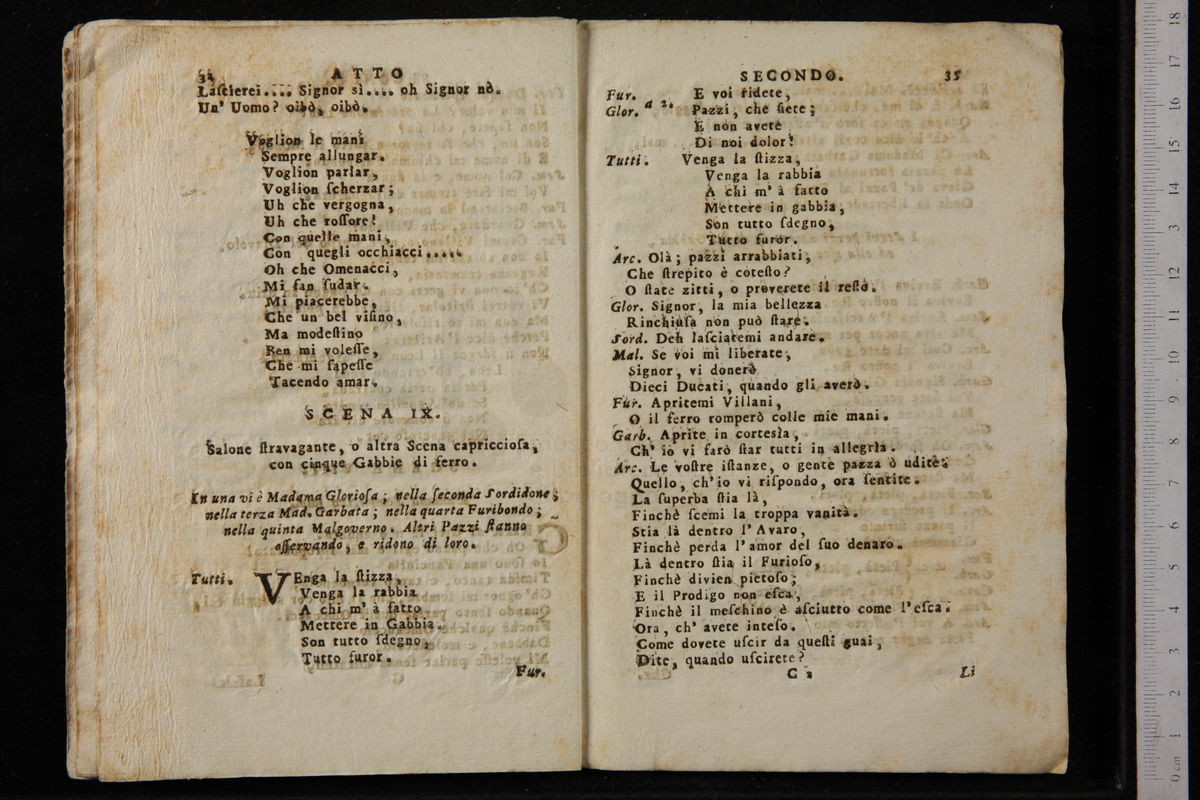 34 ATTO
Laſcierei.... Signor sì.... oh Signor nò.
Un' Uomo? oibò, oibò.
Voglion le mani
Sempre allungar.
Voglion parlar,
Voglion ſcherzar;
Uh che vergogna,
Uh che roſſore!
Con quelle mani,
Con quegli occhiacci.....
Oh che Omenacci,
Mi fan ſudar.
Mi piacerebbe,
Che un bel viſino,
Ma modeſtino
Ben mi voleſſe,
Che mi ſapeſſe
Tacendo amar.
SCENA IX.
Salone ſtravagante, o altra Scena capriccioſa,
con cinque Gabbie di ferro.
In una vi è Madama Glorioſa; nella ſeconda Sordidone;
nella terza Mad. Garbata; nella quarta Furibondo;
nella quinta Malgoverno. Altri Pazzi ſtanno
oſſervando, e ridono di loro.
Tutti. VEnga la ſtizza,
Venga la rabbia
A chi m' à fatto
Mettere in Gabbia.
Son tutto ſdegno,
Tutto furor.
Fur.
SECONDO. 35
Fur. E voi ridete,
Glor. a 2. Pazzi, che ſiete;
E non avete
Di noi dolor!
Tutti. Venga la ſtizza,
Venga la rabbia
A chi m' à fatto
Mettere in gabbia,
Son tutto ſdegno,
Tutto furor.
Arc. Olà; pazzi arrabbiati,
Che ſtrepito è coteſto?
O ſtate zitti, o proverete il reſto.
Glor. Signor, la mia bellezza
Rinchiuſa non può ſtare.
Sord. Deh laſciatemi andare.
Mal. Se voi mi liberate,
Signor, vi donerò
Dieci Ducati, quando gli averò.
Fur. Apritemi Villani,
O il ferro romperò colle mie mani.
Garb. Aprite in cortesìa,
Ch' io vi farò ſtar tutti in allegrìa.
Arc. Le voſtre iſtanze, o gente pazza ò udite:
Quello, ch'io vi riſpondo, ora ſentite.
La ſuperba ſtia là,
Finchè ſcemi la troppa vanità.
Stia là dentro l'Avaro,
Finchè perda l'amor del ſuo denaro.
Là dentro ſtia il Furioſo,
Finchè divien pietoſo;
E il Prodigo non eſca,
Finchè il meſchino è aſciutto come l'eſca.
Ora, ch' avete inteſo.
Come dovete uſcir da queſti guai,
Dite, quando uſcirete?
C 2 Li
18
17
16
15
14
13
12
11
10
9
8
7
6
5
4
3
2
1
0 cm